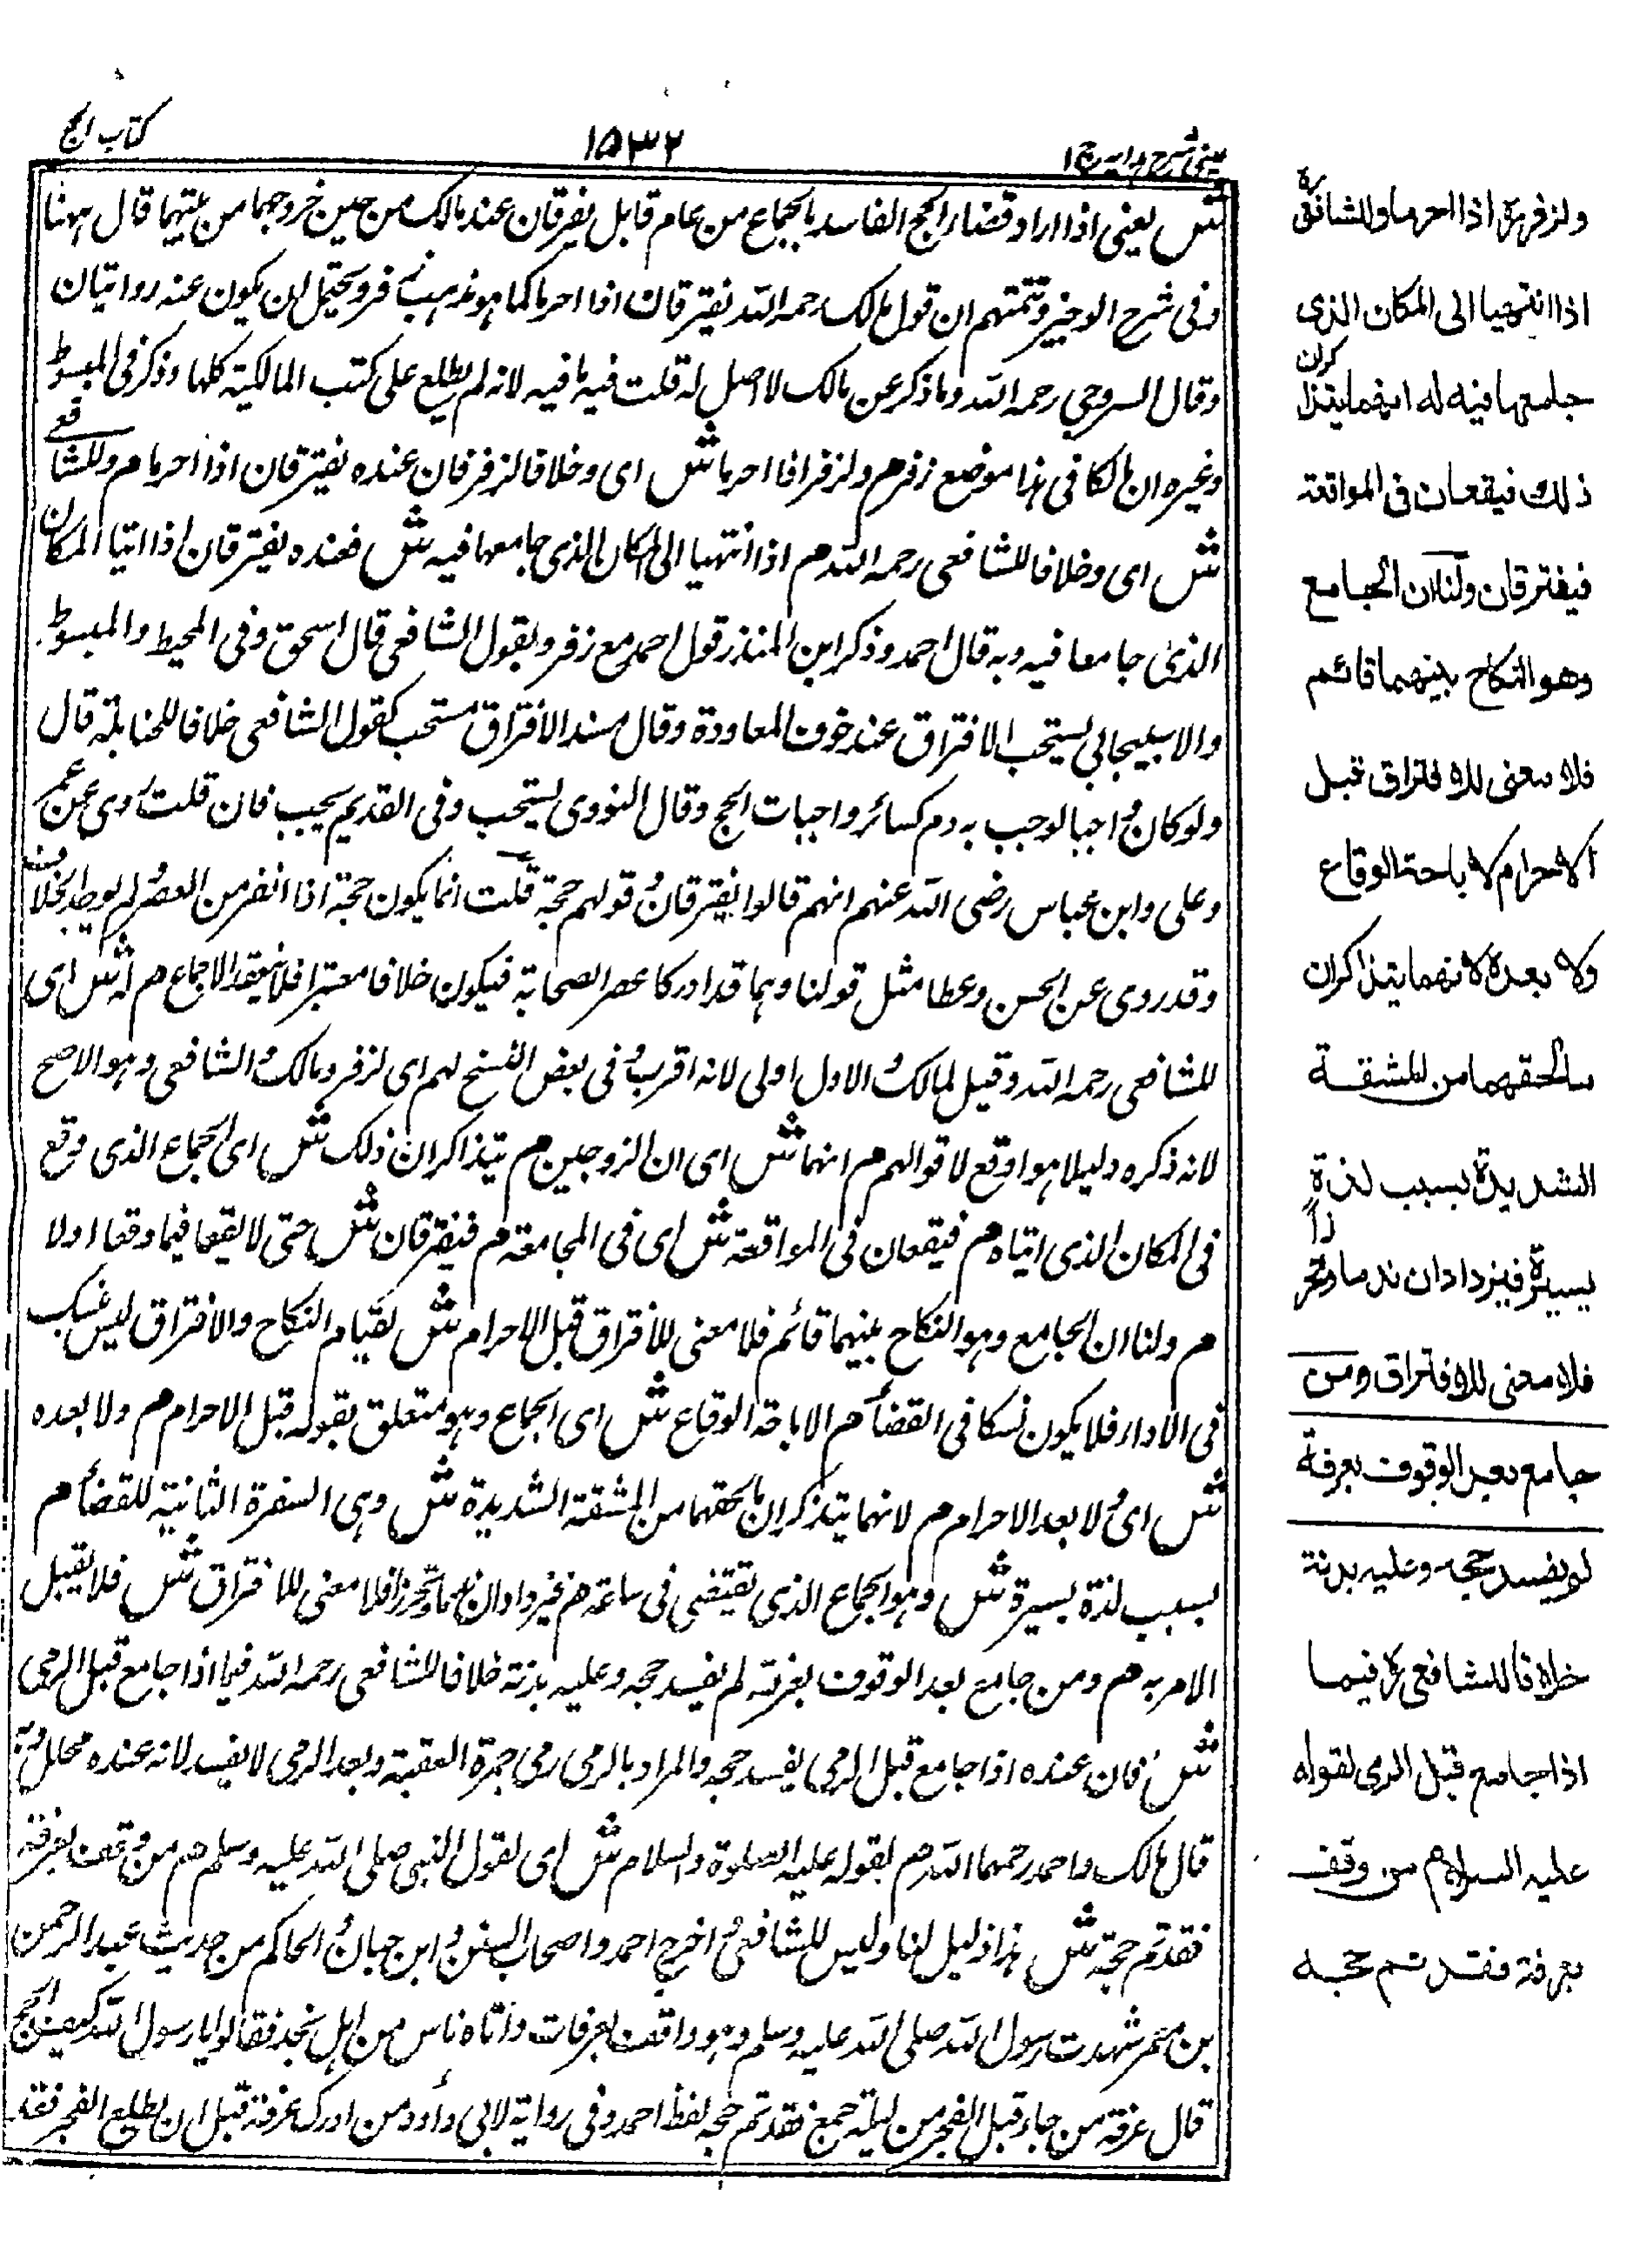 عینی شرح ہدایہ ج ۱
۱۵۳۲
کتاب الحج
ش یعنی اذا ارادا قضاء الحج الفاسد بالجماع من عام قابل یفترقان عند مالک من حین خروجہما من بیتہما قال ہہنا
وفی شرح الوجیز وتتمتہم ان قول مالک رحمہ اللہ یفترقان اذا احرما کما ہو مذہب زفر ویحتمل ان یکون عنہ روایتان
وقال السروجی رحمہ اللہ وما ذکر عن مالک لا اصل لہ قلت فیہ ما فیہ لانہ لم یطلع علی کتب المالکیۃ کلہا وذکر فی المبسوط
وغیرہ ان مالکا فی ہذا موضع زفر م ولزفر اذا احرما ش ای وخلافا لزفر فان عندہ یفترقان اذا احرما م وللشافعی
ش ای وخلافا للشافعی رحمہ اللہ م اذا انتہیا الی المکان الذی جامعہا فیہ ش فعندہ یفترقان اذا اتیا المکان
الذی جامعا فیہ وبہ قال احمد وذکر ابن المنذر قول احمد مع زفر وبقول الشافعی قال اسحق وفی المحیط والمبسوط
والاسبیجابی یستحب الافتراق عند خوف المعاودۃ وقال سند الافتراق مستحب کقول الشافعی خلافا للحنابلۃ قال
ولو کان واجبا لوجب بہ دم کسائر واجبات الحج وقال النووی یستحب وفی القدیم یجب فان قلت روی عن عمر
وعلی وابن عباس رضی اللہ عنہم انہم قالوا یفترقان وقولہم حجۃ قلت انما یکون حجۃ اذا انقرض العصر ولم یوجد بخلاف
وقد روی عن الحسن وعطا مثل قولنا وہما قد ادرکا عصر الصحابۃ فیکون خلافا معتبرا فلا ینعقد الاجماع م لہ ش ای
للشافعی رحمہ اللہ وقیل لمالک والاول اولی لانہ اقرب وفی بعض النسخ لہم ای لزفر ومالک والشافعی وہو الاصح
لانہ ذکرہ دلیلا ہو اوقع لاقوالہم م انہما ش ای ان الزوجین م یتذاکران ذلک ش ای الجماع الذی وقع
فی المکان الذی اتیاہ م فیقعان فی المواقعۃ ش ای فی المجامعۃ م فیفترقان ش حتی لا یقعا فیما وقعا اولا
م ولنا ان الجامع وہو النکاح بینہما قائم فلا معنی للافتراق قبل الاحرام ش لقیام النکاح والافتراق لیس بنسک
فی الاداء فلا یکون نسکا فی القضاء م لاباحۃ الوقاع ش ای الجماع وہو متعلق بقولہ قبل الاحرام م ولا بعدہ
ش ای ولا بعد الاحرام م لانہما یتذکران ما لحقہما من المشقۃ الشدیدۃ ش وہی السفرۃ الثانیۃ للقضاء م
بسبب لذۃ یسیرۃ ش وہو الجماع الذی یقتضی فی ساعۃ م فیزدادان ندما وتحرزا فلا معنی للافتراق ش فلا یقبل
الامر بہ م ومن جامع بعد الوقوف بعرفۃ لم یفسد حجہ وعلیہ بدنۃ خلافا للشافعی رحمہ اللہ فیما اذا جامع قبل الرمی
ش فان عندہ اذا جامع قبل الرمی یفسد حجہ والمراد بالرمی رمی جمرۃ العقبۃ وبعد الرمی لا یفسد لانہ عندہ محلل وبہ
قال مالک واحمد رحمہما اللہ م لقولہ علیہ الصلوۃ والسلام ش ای لقول النبی صلی اللہ علیہ وسلم م من وقف بعرفۃ
فقد تم حجہ ش ہذا دلیل لنا ولیس للشافعی واخرج احمد واصحاب السنن وابن حبان والحاکم من حدیث عبد الرحمن
بن یعمر شہدت رسول اللہ صلی اللہ علیہ وسلم وہو واقف بعرفات واتاہ ناس من اہل نجد فقالوا یا رسول اللہ کیف الحج
قال عرفۃ من جاء قبل الفجر من لیلۃ جمع فقد تم حجہ لفظ احمد وفی روایۃ لابی داؤد من ادرک عرفۃ قبل ان یطلع الفجر فقد
ولزفر رح اذا احرما وللشافعی رح
اذا انتهيا الى المكان الذى
جامعها فيه له انهما يتذاكران
ذلك فيقعان فى المواقعة
فيفترقان ولنا ان الجامع
وهو النكاح بينهما قائم
فلا معنى للافتراق قبل
الاحرام لاباحة الوقاع
ولا بعده لانهما يتذاكران
ما لحقهما من المشقة
الشديدة بسبب لذة
يسيرة فيزدادان ندما وتحرزا
فلا معنى للافتراق ومن
جامع بعد الوقوف بعرفة
لم يفسد حجه وعليه بدنة
خلافا للشافعى رح فيما
اذا جامع قبل الرمى لقوله
عليه السلام من وقف
بعرفة فقد تم حجه